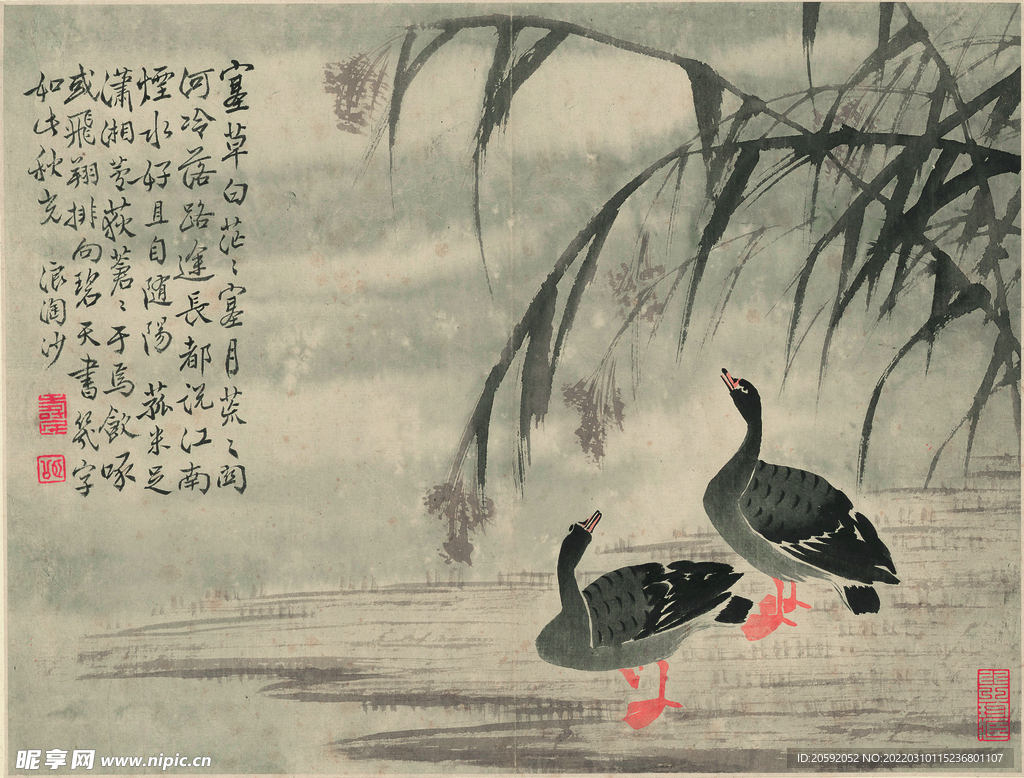 塞草白茫〻塞月荒〻関
河冷落路途長都説江南
煙水好且自随陽 菰米足
瀟湘芦荻蒼〻于焉飲啄
或飛翔排向碧天書幾字
如此秋光 浪淘沙
昵享网 www.nipic.cn
ID:20592052 NO:20220310115236801107